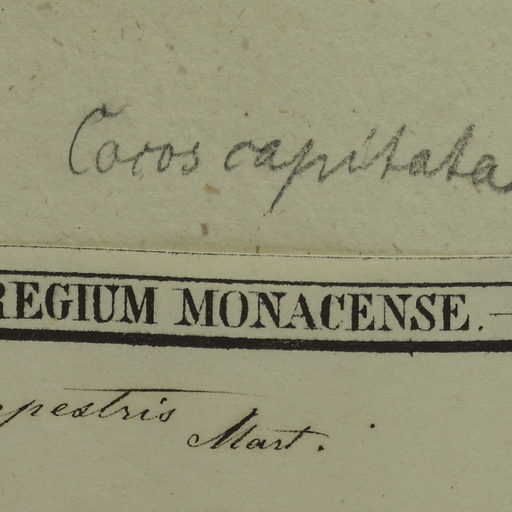 Cocos capitata
REGIUM MONACENSE.
pestris Mart.